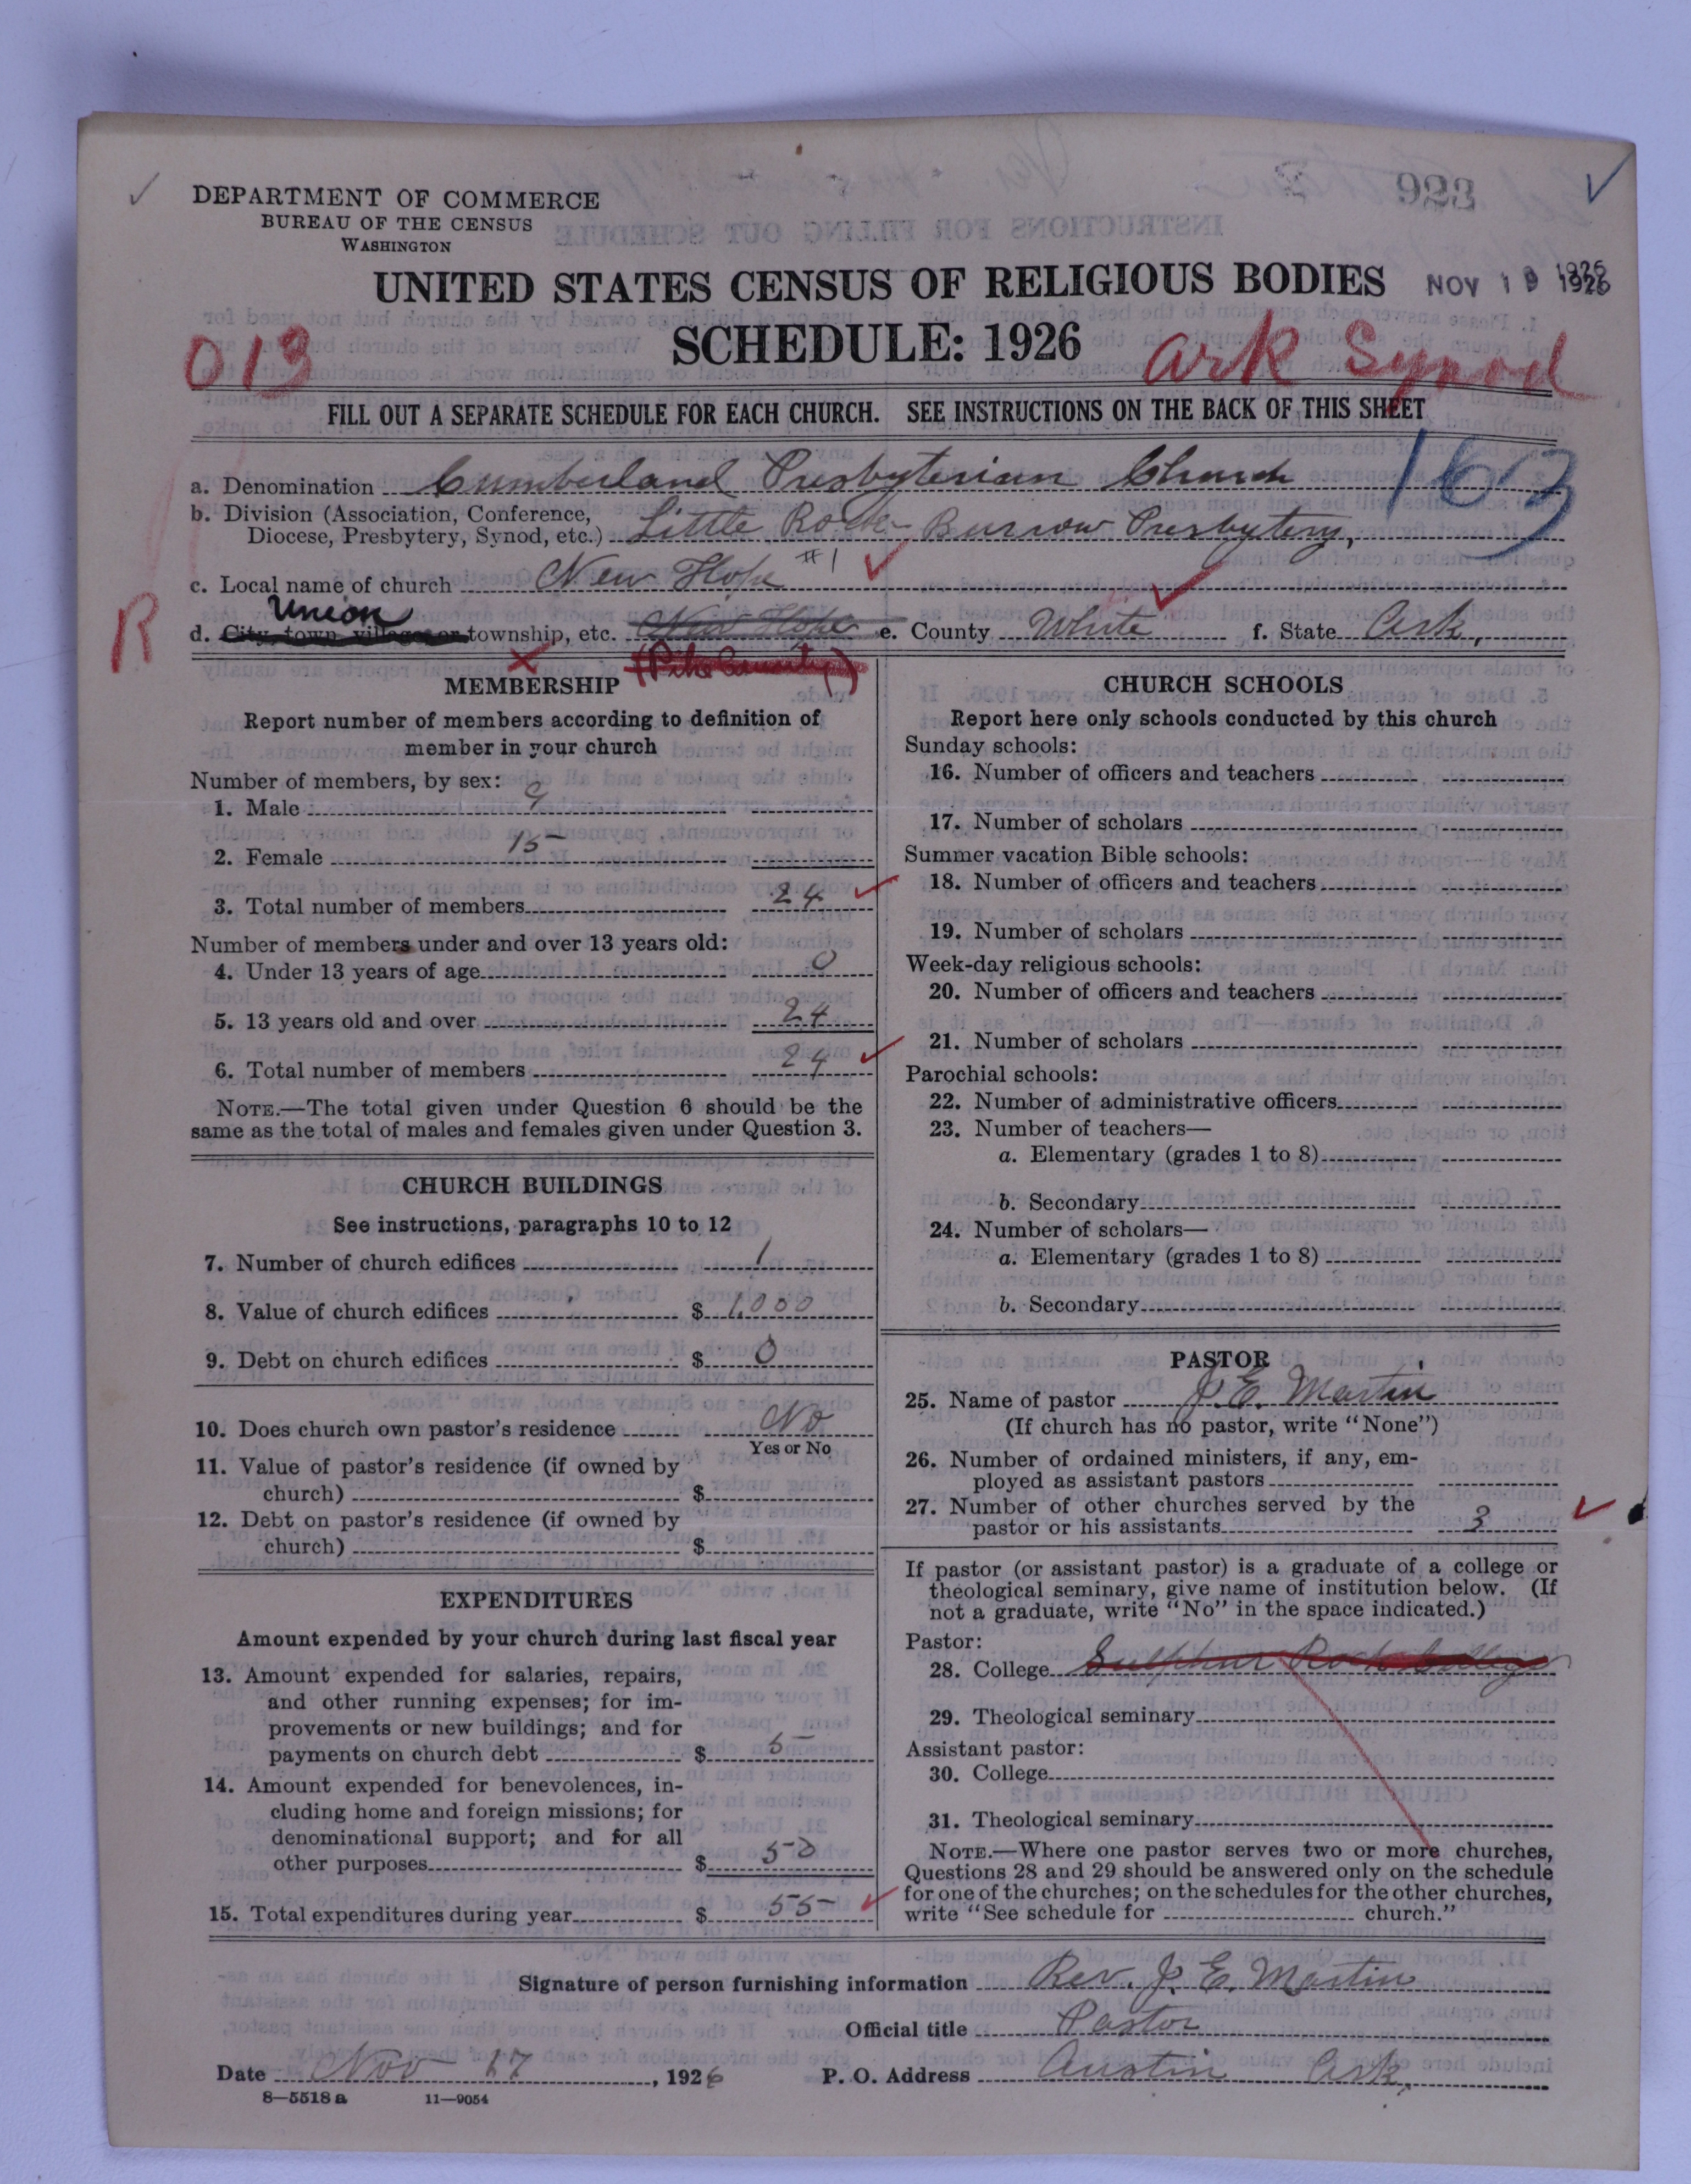 923
DEPARTMENT OF COMMERCE
BUREAU OF THE CENSUS
WASHINGTON
UNITED STATES CENSUS OF RELIGIOUS BODIES
NOV 19 1926
1926
SCHEDULE: 1926
013
Ark Synod
FILL OUT A SEPARATE SCHEDULE FOR EACH CHURCH. SEE INSTRUCTIONS ON THE BACK OF THIS SHEET
163
a. Denomination Cumberland Presbyterian Church
b. Division (Association, Conference,
Diocese, Presbytery, Synod, etc.) Little Rock-Burrow Presbytery,
c. Local name of church New Hope #1
R
Union
d. City, town, village, or township, etc. New Hope e. County White f. State Ark,
(Pike County)
MEMBERSHIP
Report number of members according to definition of
member in your church
Number of members, by sex:
1. Male 9
2. Female 15
3. Total number of members 24
Number of members under and over 13 years old:
4. Under 13 years of age 0
5. 13 years old and over 24
6. Total number of members 24
NOTE.—The total given under Question 6 should be the
same as the total of males and females given under Question 3.
CHURCH BUILDINGS
See instructions, paragraphs 10 to 12
7. Number of church edifices 1
8. Value of church edifices $ 1,000
9. Debt on church edifices $ 0
10. Does church own pastor's residence No
Yes or No
11. Value of pastor's residence (if owned by
church) $
12. Debt on pastor's residence (if owned by
church) $
EXPENDITURES
Amount expended by your church during last fiscal year
13. Amount expended for salaries, repairs,
and other running expenses; for im-
provements or new buildings; and for
payments on church debt $ 5
14. Amount expended for benevolences, in-
cluding home and foreign missions; for
denominational support; and for all
other purposes $ 50
15. Total expenditures during year $ 55
CHURCH SCHOOLS
Report here only schools conducted by this church
Sunday schools:
16. Number of officers and teachers
17. Number of scholars
Summer vacation Bible schools:
18. Number of officers and teachers
19. Number of scholars
Week-day religious schools:
20. Number of officers and teachers
21. Number of scholars
Parochial schools:
22. Number of administrative officers
23. Number of teachers—
a. Elementary (grades 1 to 8)
b. Secondary
24. Number of scholars—
a. Elementary (grades 1 to 8)
b. Secondary
PASTOR
25. Name of pastor J. E. Martin
(If church has no pastor, write "None")
26. Number of ordained ministers, if any, em-
ployed as assistant pastors
27. Number of other churches served by the
pastor or his assistants 3
If pastor (or assistant pastor) is a graduate of a college or
theological seminary, give name of institution below. (If
not a graduate, write "No" in the space indicated.)
Pastor:
28. College Sulphur Rock College
29. Theological seminary
Assistant pastor:
30. College
31. Theological seminary
NOTE.—Where one pastor serves two or more churches,
Questions 28 and 29 should be answered only on the schedule
for one of the churches; on the schedules for the other churches,
write "See schedule for church."
Signature of person furnishing information Rev. J. E. Martin
Official title Pastor
Date Nov 17, 1926 P. O. Address Austin Ark,
8—5518 a 11—9054